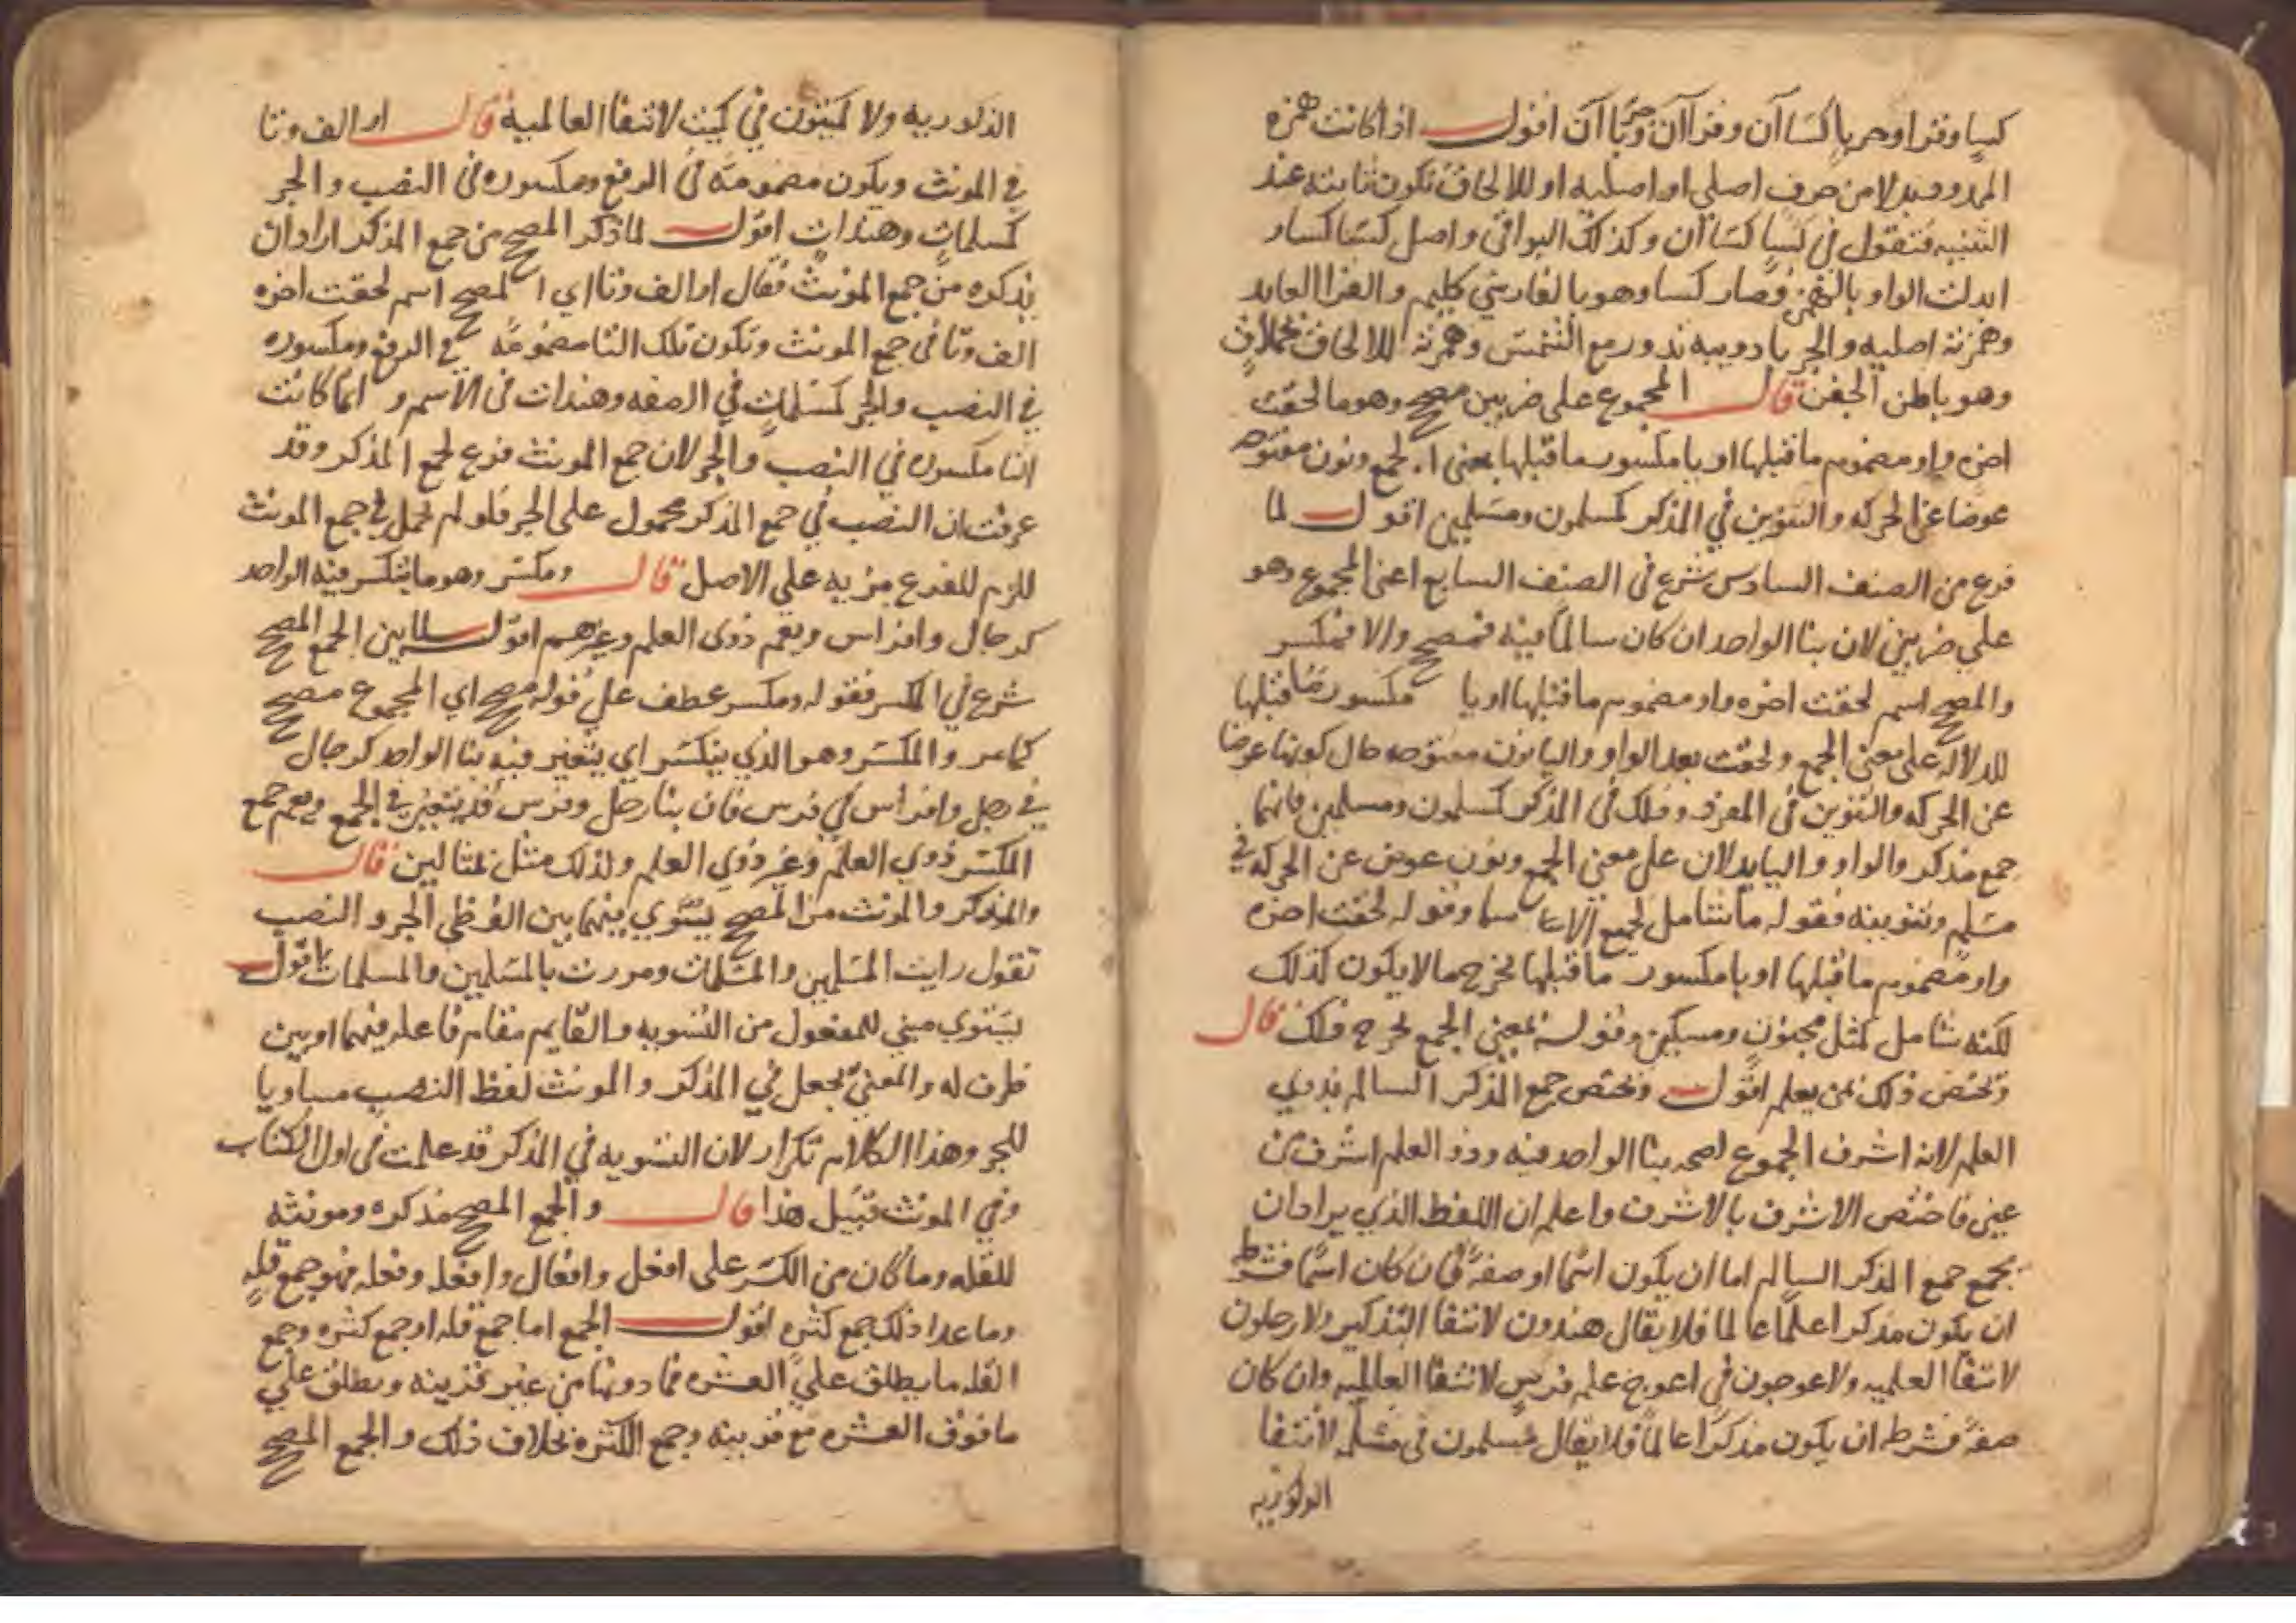 كساء وقراء وحرباء كساآن وقراآن وحرباآن اقول اذا كانت همزة
الممدود بدلا من حرف اصلي او اصليه او للالحاق تكون ثابته عند
التثنيه فتقول في كساء كساآن وكذلك البواقي واصل كسا كساو
ابدلت الواو بالهمز فصار كسا وهو بالفارسي كليم والقرا العابد
وهمزته اصليه والحربا دويبه تدور مع الشمس وهمزته للالحاق بحملاق
وهو باطن الجفن قال المجموع على ضربين مصحح وهو ما لحقت
اخره واو مضموم ما قبلها او يا مكسور ما قبلها بمعنى الجمع ونون مفتوحه
عوضا عن الحركه والتنوين في المذكر كمسلمون ومسلمين اقول لما
فرغ من الصنف السادس شرع في الصنف السابع اعنى المجموع وهو
علي ضربين لان بنا الواحد ان كان سالما فيه فمصحح والا فمكسر
والمصحح اسم لحقت اخره واو مضموم ما قبلها او يا مكسور ما قبلها
للدلاله على معنى الجمع ولحقت بعد الواو واليا نون مفتوحه حال كونها عوضا
عن الحركه والتنوين في المفرد وذلك في المذكر كمسلمون ومسلمين فانهما
جمع مذكر والواو واليا يدلان على معنى الجمع ونون عوض عن الحركه في
مسلم وتنوينه فقوله ما شامل لجميع الاسما وقوله لحقت اخره
واو مضموم ما قبلها او يا مكسور ما قبلها يخرج ما لا يكون كذلك
لكنه شامل لمثل مجنون ومسكين وقوله بمعنى الجمع يخرج ذلك قال
وتختص ذلك بمن يعلم اقول وتختص جمع المذكر السالم بذوي
العلم لانه اشرف الجموع لصحه بنا الواحد فيه وذو العلم اشرف من
غيره فاختص الاشرف بالاشرف واعلم ان اللفظ الذي يراد ان
يجمع جمع المذكر السالم اما ان يكون اسما او صفة فان كان اسما فشرطه
ان يكون مذكرا علما عالما فلا يقال هندون لانتفا التذكير ولا رجلون
لانتفا العلميه ولا اعوجون في اعوج علم فرس لانتفا العالميه وان كان
صفة فشرطه ان يكون مذكرا عالما فلا يقال مسلمون في مسلمه لانتفا
الذكوريه
الذكوريه ولا كميتون في كميت لانتفا العالميه قال او الف وتا
في المونث ويكون مضمومه في الرفع ومكسوره في النصب والجر
كمسلمات وهندات اقول لما ذكر المصحح من جمع المذكر اراد ان
يذكره من جمع المونث فقال او الف وتا اي المصحح اسم لحقت اخره
الف وتا في جمع المونث وتكون تلك التا مضمومه في الرفع ومكسوره
في النصب والجر كمسلمات في الصفه وهندات في الاسم وانما كانت
التا مكسوره في النصب والجر لان جمع المونث فرع لجمع المذكر وقد
عرفت ان النصب في جمع المذكر محمول على الجر فلو لم يحمل في جمع المونث
للزم للفرع مزيه علي الاصل قال ومكسر وهو ما يتكسر فيه الواحد
كرجال وافراس ويعم ذوى العلم وغيرهم اقول لما بين الجمع المصحح
شرع في المكسر فقوله ومكسر عطف على قوله مصحح اي المجموع مصحح
كما مر والمكسر وهو الذي يتكسر اي يتغير فيه بنا الواحد كرجال
في رجل وافراس في فرس فان بنا رجل وفرس قد يتغير في الجمع ويعم جمع
المكسر ذوي العلم وغير ذوي العلم ولذلك مثل بمثالين قال
والمذكر والمونث من المصحح يسوي بينهما بين لفظي الجر والنصب
تقول رايت المسلمين والمسلمات ومررت بالمسلمين والمسلمات اقول
يستوي مبني للمفعول من التسويه والقايم مقام فاعله فيهما او بين
ظرف له والمعنى يجعل في المذكر والمونث لفظ النصب مساويا
للجر وهذا الكلام تكرار لان التسويه في المذكر قد علمت في اول الكتاب
وفي المونث قبيل هذا قال والجمع المصحح مذكره ومونثه
للقله وما كان من المكسر على افعل وافعال وافعله وفعله فهو جمع قله
وما عدا ذلك جمع كثره اقول الجمع اما جمع قله او جمع كثره وجمع
القله ما يطلق علي العشره فما دونها من غير قرينه ويطلق علي
ما فوق العشره مع قرينه وجمع الكثره بخلاف ذلك والجمع المصحح